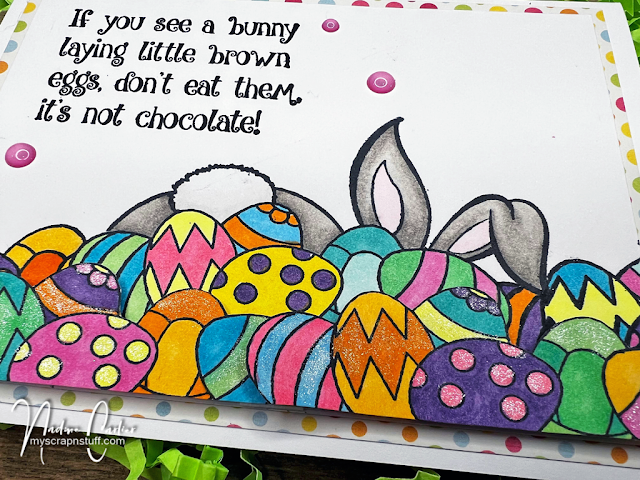 If you see a bunny
laying little brown
eggs, don't eat them,
it's not chocolate!
myscrapnstuff.com